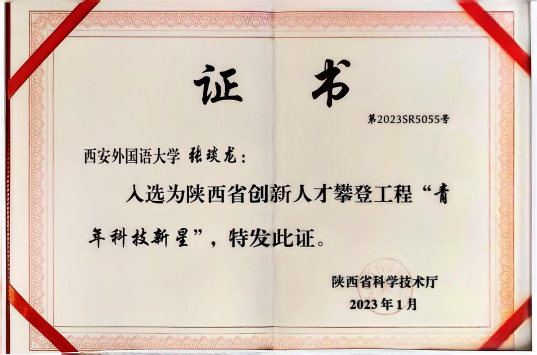 证书
第2023SR5055号
西安外国语大学 张琰龙：
入选为陕西省创新人才攀登工程“青
年科技新星”，特发此证。
陕西省科学技术厅
2023年1月